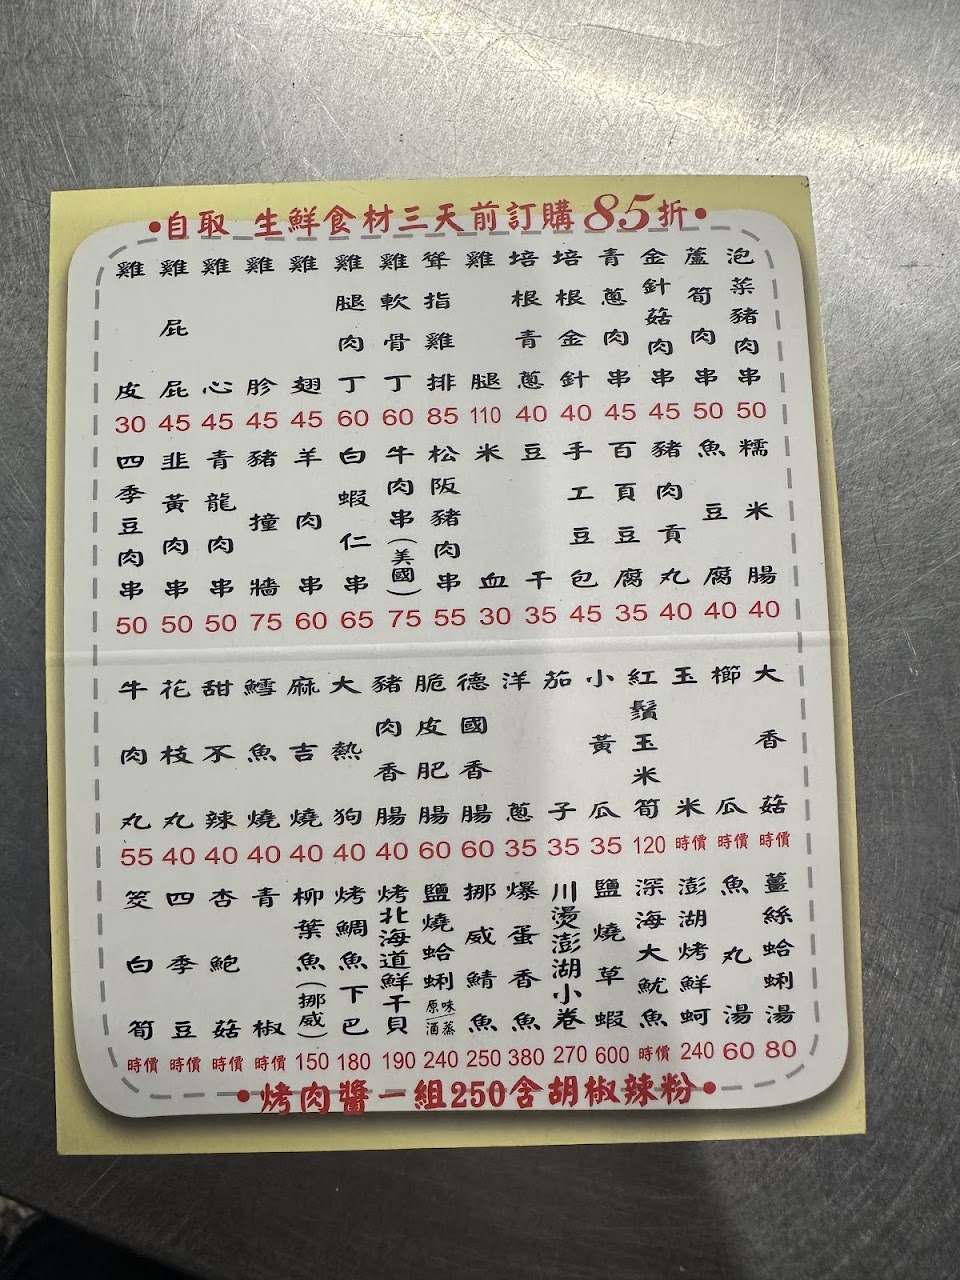 •自取 生鮮食材三天前訂購85折•
雞皮 30
雞屁屁 45
雞心 45
雞胗 45
雞翅 45
雞腿肉丁 60
雞軟骨丁 60
聳指雞排 85
雞腿 110
培根青蔥 40
培根金針 40
青蔥肉串 45
金針菇肉串 45
蘆筍肉串 50
泡菜豬肉串 50
四季豆肉串 50
韭黃肉串 50
青龍肉串 50
豬撞牆 75
羊肉串 60
白蝦仁串 65
牛肉串(美國) 75
松阪豬肉串 55
米血 30
豆干 35
手工豆包 45
百頁豆腐 35
豬肉貢丸 40
魚豆腐 40
糯米腸 40
牛肉丸 55
花枝丸 40
甜不辣 40
鱈魚燒 40
麻吉燒 40
大熱狗 40
豬肉香腸 40
脆皮肥腸 60
德國香腸 60
洋蔥 35
茄子 35
小黃瓜 35
紅鬚玉米筍 120
玉米 時價
櫛瓜 時價
大香菇 時價
筊白筍 時價
四季豆 時價
杏鮑菇 時價
青椒 時價
柳葉魚(挪威) 150
烤鯛魚下巴 180
烤北海道鮮干貝 190
鹽燒蛤蜊 原味/酒蒸 240
挪威鯖魚 250
爆蛋香魚 380
川燙澎湖小卷 270
鹽燒草蝦 600
深海大魷魚 時價
澎湖烤鮮蚵 240
魚丸湯 60
薑絲蛤蜊湯 80
•烤肉醬一組250含胡椒辣粉•